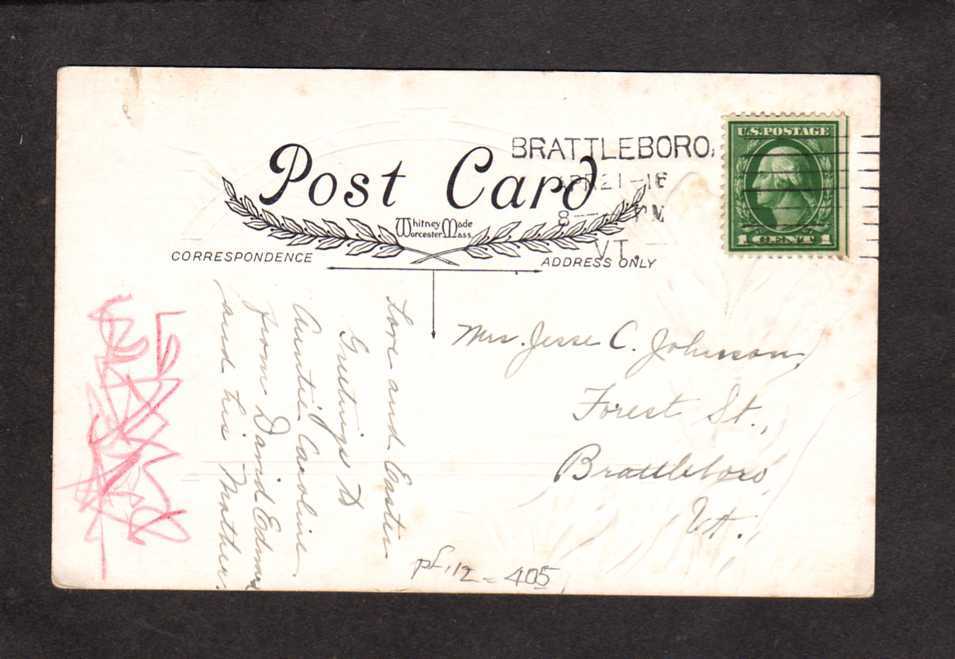 BRATTLEBORO,
APR 21-16
8— PM
VT.
U.S. POSTAGE
1 CENT 1
Post Card
Whitney Made
Worcester Mass
CORRESPONDENCE
ADDRESS ONLY
Love and Easter
Greetings to
Auntie Caroline
from David Edmu
and his Mother.
Mrs. Jesse C. Johnson
Forest St.,
Brattleboro
Vt.
pf, 12 - 405